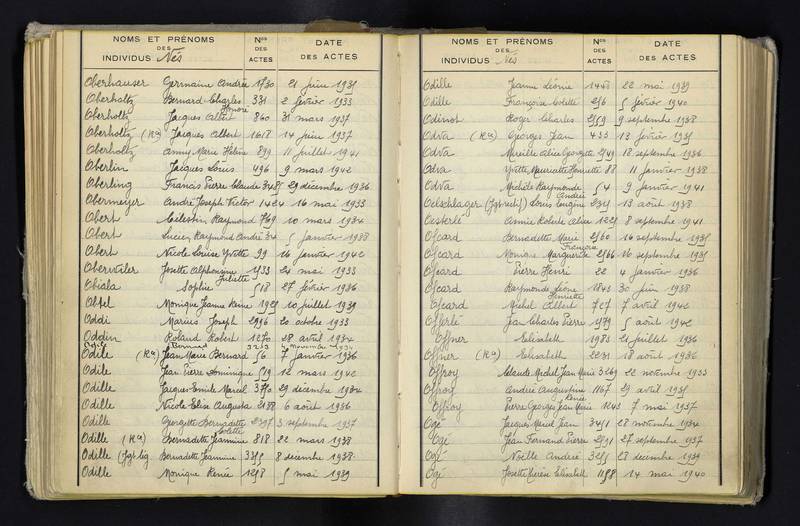 NOMS ET PRÉNOMS DES INDIVIDUS Nés
Nos DES ACTES
DATE DES ACTES
Oberhauser Germaine Andrée 1730 21 juin 1939
Oberholtz Bernard Charles 331 2 février 1933
Honoré
Oberholtz Jacques Albert 860 31 mars 1937
Oberholtz (Ra) Jacques Albert 1618 14 juin 1937
Oberholtz Anny Marie Hélène 899 11 juillet 1941
Oberlin Jacques Louis 496 9 mars 1942
Oberling Francis Pierre Claude 3485 29 décembre 1936
Obermeyer André Joseph Victor 1424 16 mai 1933
Obert Célestin Raymond 769 10 mars 1934
Obert Lucien Raymond André 34 5 janvier 1938
Obert Nicole Louise Yvette 99 16 janvier 1942
Oberweiler Josette Alphonsine 1933 24 mai 1933
Juliette
Obiala Sophie 518 27 février 1936
Obtel Monique Jeanne Reine 1929 10 juillet 1939
Oddi Marius Joseph 2996 20 octobre 1933
Oddin Roland Robert 1270 28 avril 1934
Odile (Ra) Jean Marie Bernard 56 7 janvier 1936
Odille Jean Pierre Dominique 519 12 mars 1942
Odille Jacques Emile Marcel 3370 29 décembre 1934
Odille Nicole Elise Augusta 2188 6 août 1936
Odille Georgette Bernadette 2397 3 septembre 1937
Colette
Odille (Ra) Bernadette Jeannine 818 22 mars 1938
Odille (Jgt lég. Bernadette Jeannine 3355 8 décembre 1938
Odille Monique Renée 1258 5 mai 1939
NOMS ET PRÉNOMS DES INDIVIDUS Nés
Nos DES ACTES
DATE DES ACTES
Odille Jeanne Léonie 1448 22 mai 1939
Odille Françoise Colette 256 5 février 1940
Odinot Roger Charles 2559 9 septembre 1938
Odva (Ra) Georges Jean 433 13 février 1935
Odva Mireille Alice Georgette 2549 18 septembre 1936
Odva Yvette Mauricette Henriette 88 11 janvier 1938
Odva Michèle Raymonde 54 9 janvier 1941
Andrée
Oelschlager (Jgt rectif) Louis Eugène 2331 13 août 1938
Oesterlé Annie Roberte Alice 1225 8 septembre 1941
Ofcard Bernadette Marie 2560 16 septembre 1935
Françoise
Ofcard Monique Marguerite 2566 16 septembre 1935
Ofcard Pierre Henri 22 4 janvier 1936
Ofcard Raymonde Léone 1843 30 juin 1938
Henriette
Ofcard Michel Albert 727 7 avril 1942
Offerlé Jean Charles Pierre 1579 5 août 1942
Offner Elisabeth 1983 21 juillet 1936
Offner (Ra) Elisabeth 2231 18 août 1936
Offroy Claude Michel Jean Marie 3269 22 novembre 1933
Offroy André Augustine 1167 29 avril 1935
Renée
Offroy Pierre Georges Jean Marie 1243 7 mai 1937
Ogé Jacques Marcel Jean 3451 28 novembre 1934
Ogé Jean Fernand Pierre 2591 27 septembre 1937
Ogé Noëlle Andrée 3255 28 décembre 1939
Ogé Josette Thérèse Elisabeth 1158 14 mai 1940